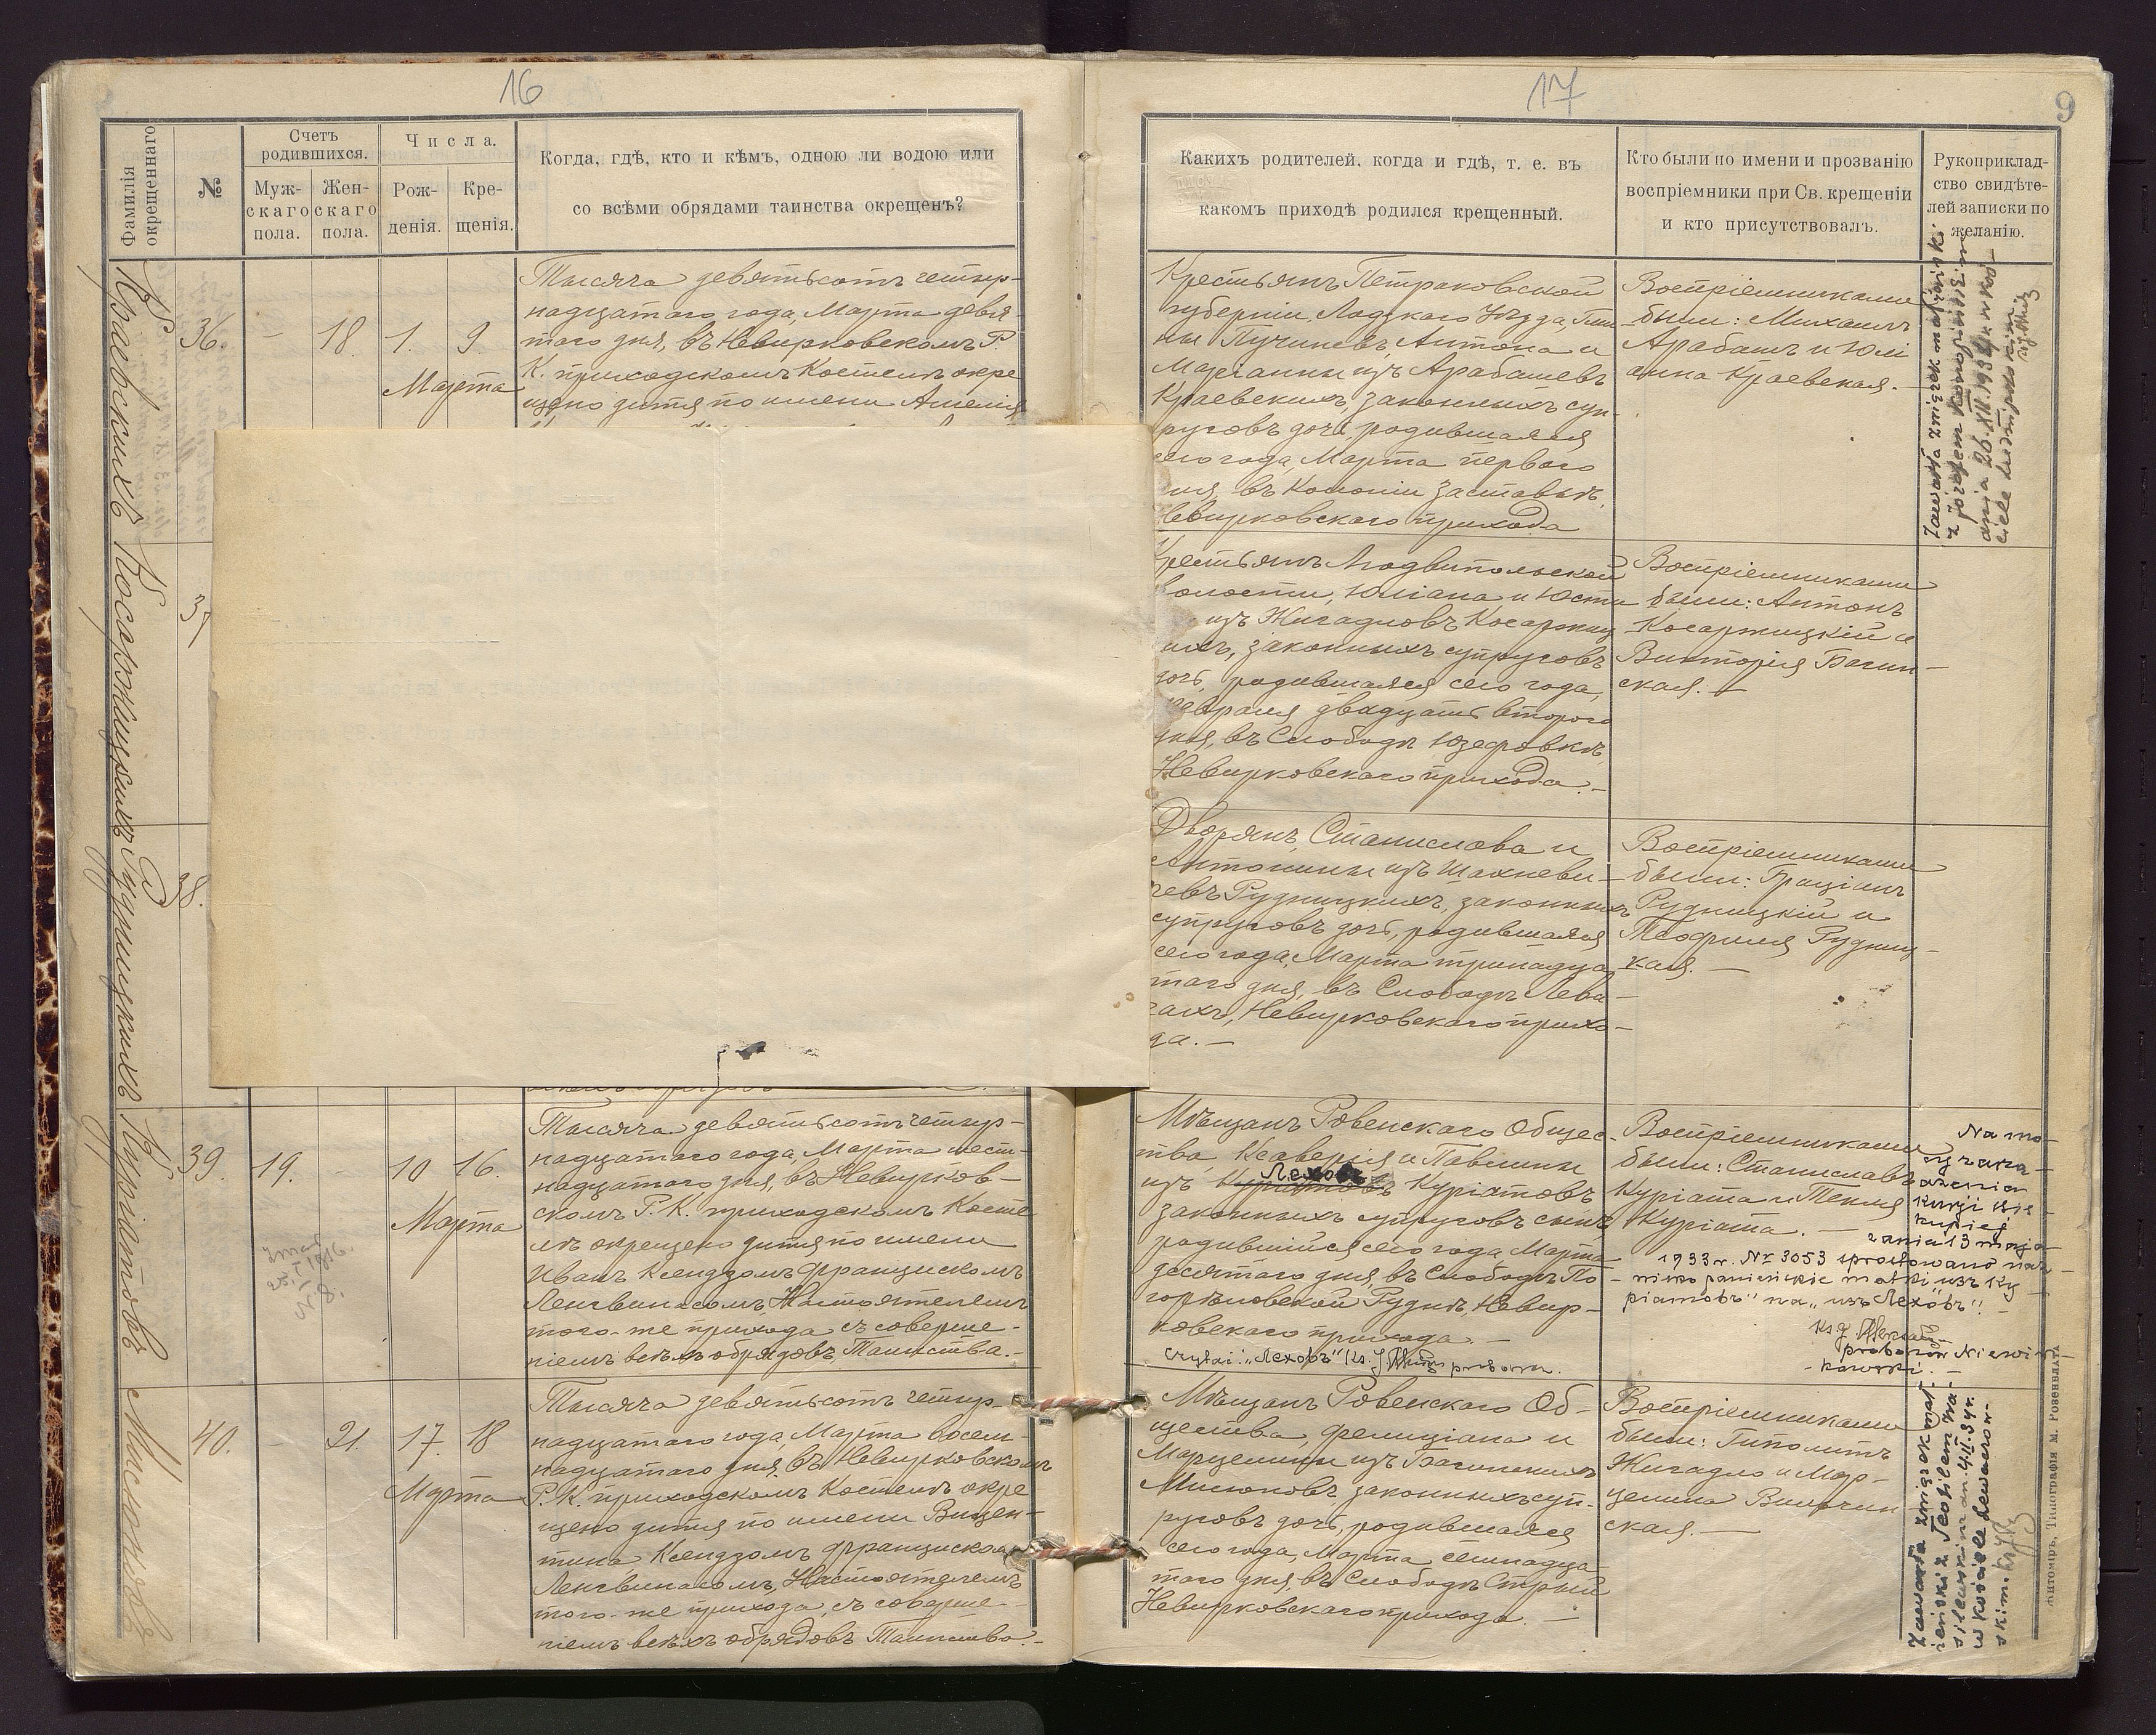 16
Фамилія окрещеннаго
№
Счетъ родившихся.
Мужскаго пола.
Женскаго пола.
Числа.
Рожденія.
Крещенія.
Когда, гдѣ, кто и кѣмъ, одною ли водою или
со всѣми обрядами таинства окрещенъ?
Краевскихъ
36.
-
18.
1.
9.
Марта
Тысяча девятьсотъ четыр-
надцатаго года, Марта девя-
таго дня, въ Невирковскомъ Р.
К. приходскомъ Костелѣ окре
щено дитя по имени Амелія
Косаржицкихъ
37
Рудницкихъ
38.
Куріатовъ
39.
19.
-
10
16.
Марта
Тысяча девятьсотъ четыр-
надцатаго года, Марта шест-
надцатаго дня, въ Невирков-
скомъ Р. К. приходскомъ Косте
лѣ окрещено дитя по имени
Иванъ Ксендзомъ Францискомъ
Ленгвинасомъ, Настоятелемъ
того-же прихода съ соверше-
ніемъ всѣхъ обрядовъ Таинства.-
40.
-
21.
17.
18
Марта
Тысяча девятьсотъ четыр-
надцатаго года, Марта восем-
надцатаго дня, въ Невирковскомъ
Р. К. приходскомъ Костелѣ окре
щено дитя по имени Вицен-
тина Ксендзомъ Францискомъ
Ленгвинасомъ, Настоятелемъ
того-же прихода, съ соверше-
ніемъ всѣхъ обрядовъ Таинства.-
17
9
Какихъ родителей, когда и гдѣ, т. е. въ
какомъ приходѣ родился крещенный.
Кто были по имени и прозванію
воспріемники при Св. крещеніи
и кто присутствовалъ.
Рукоприклад-
ство свидѣте-
лей записки по
желанію.
Крестьянъ Петраковской
губерніи Лодзкаго Уѣзда, Гми
ны Пучневъ, Антона и
Маріанны изъ Арабашевъ
Краевскихъ, законныхъ суп-
руговъ дочь, родившаяся
сего года, Марта перваго
дня, въ Колоніи Заставье,
Невирковскаго прихода
Воспріемниками
были: Михаилъ
Арабашъ и Юлі
анна Краевская.-
Zawarła związek małżeński
z Józefem
26.XII.1934
Крестьянъ Людвипольской
волости, Юліана и Юсти
изъ Жигадловъ Косаржиц
ихъ, законныхъ супруговъ
дочь, родившаяся сего года,
Февраля двадцать второго
дня, въ Слободѣ Юзефовкѣ,
Невирковскаго прихода.-
Воспріемниками
были: Антонъ
Косаржицкій и
Викторія Багин-
ская.-
Дворянъ, Станислава и
Антонины изъ Шахневи-
чевъ Рудницкихъ, законныхъ
супруговъ дочь, родившаяся
сего года, Марта тринадца
таго дня, въ Слободѣ Лева-
чахъ, Невирковскаго прихо-
да.-
Воспріемниками
были: Граціанъ
Рудницкій и
Теофиля Рудниц-
кая.-
Мѣщанъ Ровенскаго Общес-
тва, Ксаверія и Павлины
Леховъ
изъ Куріатовъ Куріатовъ
законныхъ супруговъ сынъ
родившійся сего года, Марта
десятаго дня, въ Слободѣ По
горѣловской Рудкѣ, Невир-
ковскаго прихода.-
Czytaj: „Леховъ" Ks. J. proboszcz.
Воспріемниками
были: Станиславъ
Куріата и Текля
Куріата.-
Na mo-
cy zarzą-
dzenia
Kurji Bis-
kupiej
z dnia 13 maja
1933 r. № 3053 sprostowano naz-
wisko panieńskie matki „изъ Ку
ріатовъ" na „изъ Леховъ".-
Ks. J.
proboszcz Niewir
kowski
Мѣщанъ Ровенскаго Об-
щества, Фелиціана и
Марцелины изъ Багинскихъ
Мисюковъ законныхъ суп-
руговъ дочь, родившаяся
сего года, Марта семнадца
таго дня, въ Слободѣ Стрый
Невирковскаго прихода.-
Воспріемниками
были: Гиполитъ
Жигадло и Мар-
целина Вильчин
ская.-
Zawarła związek mał-
żeński z Teofilem
4.II.34 r.
w kościele Lewaczow-
skim.
Житоміръ, Типографія М. Розенблата